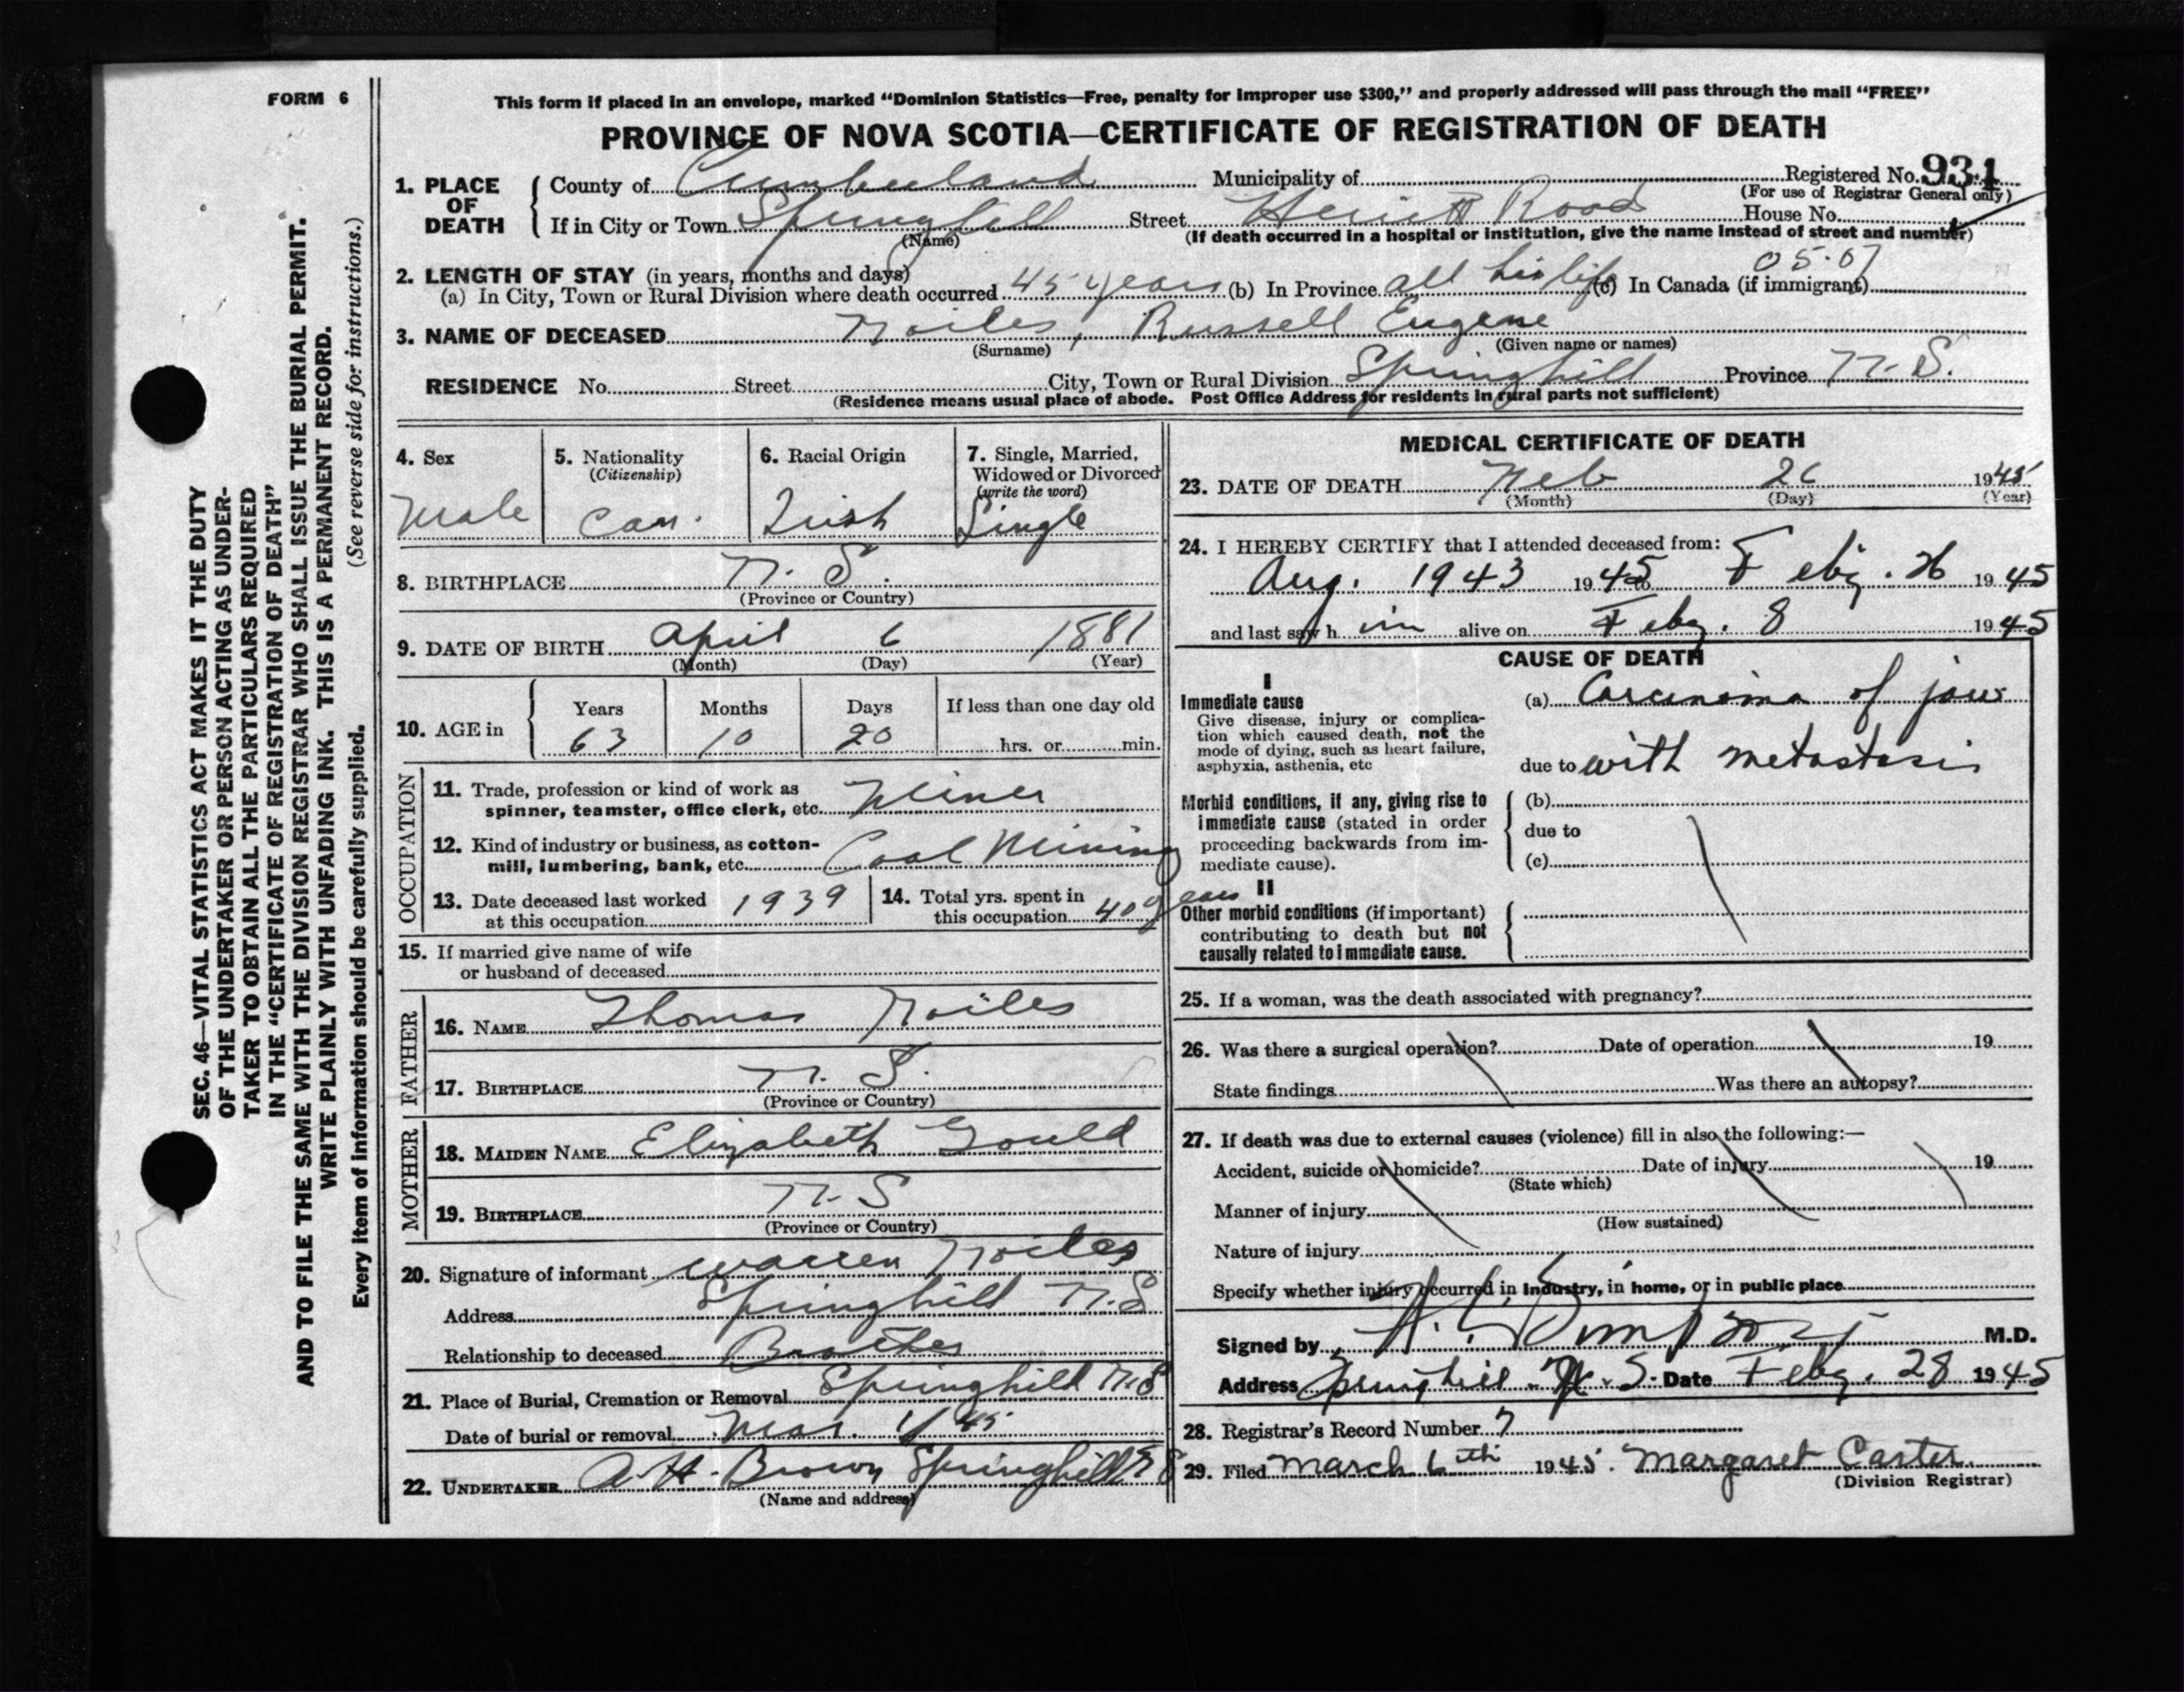 FORM 6
This form if placed in an envelope, marked "Dominion Statistics—Free, penalty for improper use $300," and properly addressed will pass through the mail "FREE"
PROVINCE OF NOVA SCOTIA—CERTIFICATE OF REGISTRATION OF DEATH
SEC. 46—VITAL STATISTICS ACT MAKES IT THE DUTY
OF THE UNDERTAKER OR PERSON ACTING AS UNDER-
TAKER TO OBTAIN ALL THE PARTICULARS REQUIRED
IN THE "CERTIFICATE OF REGISTRATION OF DEATH"
AND TO FILE THE SAME WITH THE DIVISION REGISTRAR WHO SHALL ISSUE THE BURIAL PERMIT.
WRITE PLAINLY WITH UNFADING INK. THIS IS A PERMANENT RECORD.
Every item of information should be carefully supplied. (See reverse side for instructions.)
1. PLACE OF DEATH
County of Cumberland Municipality of Registered No. 931
(For use of Registrar General only)
If in City or Town Springhill Street Road House No.
(Name) (If death occurred in a hospital or institution, give the name instead of street and number)
05.07
2. LENGTH OF STAY (in years, months and days)
(a) In City, Town or Rural Division where death occurred 45 years (b) In Province all his life (c) In Canada (if immigrant)
3. NAME OF DECEASED Noiles, Russell Eugene
(Surname) (Given name or names)
RESIDENCE No. Street City, Town or Rural Division Springhill Province N.S.
(Residence means usual place of abode. Post Office Address for residents in rural parts not sufficient)
4. Sex Male
5. Nationality (Citizenship) Can.
6. Racial Origin Irish
7. Single, Married, Widowed or Divorced (write the word) Single
8. BIRTHPLACE N.S.
(Province or Country)
9. DATE OF BIRTH April 6 1881
(Month) (Day) (Year)
10. AGE in Years 63 Months 10 Days 20 If less than one day old hrs. or min.
OCCUPATION
11. Trade, profession or kind of work as
spinner, teamster, office clerk, etc. Miner
12. Kind of industry or business, as cotton-
mill, lumbering, bank, etc. Coal Mining
13. Date deceased last worked
at this occupation 1939
14. Total yrs. spent in
this occupation 40 years
15. If married give name of wife
or husband of deceased
FATHER
16. NAME Thomas Noiles
17. BIRTHPLACE N.S.
(Province or Country)
MOTHER
18. MAIDEN NAME Elizabeth Gould
19. BIRTHPLACE N.S
(Province or Country)
20. Signature of informant Warren Noiles
Address Springhill N.S
Relationship to deceased Brother
21. Place of Burial, Cremation or Removal Springhill N.S
Date of burial or removal Mar. 1/45
22. UNDERTAKER A.H. Brown Springhill N S
(Name and address)
MEDICAL CERTIFICATE OF DEATH
23. DATE OF DEATH Feb 26 1945
(Month) (Day) (Year)
24. I HEREBY CERTIFY that I attended deceased from:
Aug. 1943 1945 to Feby. 26 1945
and last saw him alive on Feby. 8 1945
CAUSE OF DEATH
I
Immediate cause
Give disease, injury or complica-
tion which caused death, not the
mode of dying, such as heart failure,
asphyxia, asthenia, etc
(a) Carcinoma of jaw
due to with metastasis
Morbid conditions, if any, giving rise to
immediate cause (stated in order
proceeding backwards from im-
mediate cause).
(b)
due to
(c)
II
Other morbid conditions (if important)
contributing to death but not
causally related to immediate cause.
25. If a woman, was the death associated with pregnancy?
26. Was there a surgical operation? Date of operation 19
State findings Was there an autopsy?
27. If death was due to external causes (violence) fill in also the following:—
Accident, suicide or homicide? Date of injury 19
(State which)
Manner of injury
(How sustained)
Nature of injury
Specify whether injury occurred in industry, in home, or in public place
Signed by M.D.
Address Springhill N.S. Date Feby. 28 1945
28. Registrar's Record Number 7
29. Filed March 6th 1945. Margaret Carter
(Division Registrar)